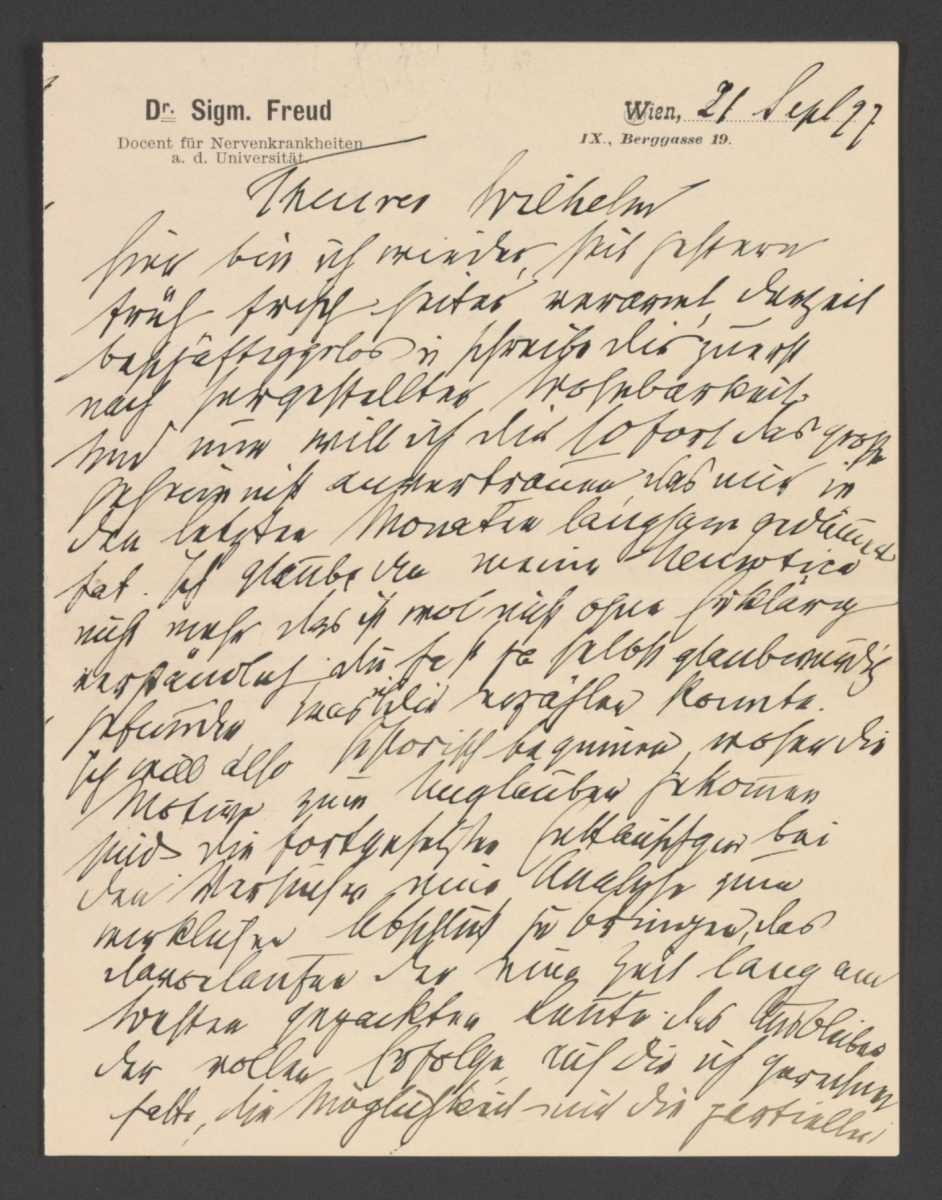 Dr. Sigm. Freud
Docent für Nervenkrankheiten
a. d. Universität.
Wien, 21 Sept 97
IX., Berggasse 19.
Theurer Wilhelm
Hier bin ich wieder, seit gestern
früh, frisch, heiter, verarmt, derzeit
beschäftiggslos u schreibe dir zuerst
nach hergestellter Wohnbarkeit.
Und nun will ich dir sofort das große
Geheimniß anvertrauen, das mir in
den letzten Monaten langsam gedämmert
hat. Ich glaube an meine Neurotica
nicht mehr. das ist wol nicht ohne Erklärg
verständlich, du hast ja selbst glaubwürdig
gefunden was ich dir erzählen konnte.
Ich will also historisch beginnen, woher die
Motive zum Unglauben gekommen
sind. die fortgesetzten Enttäuschgen bei
den Versuchen eine Analyse zum
wirklichen Abschluß zu bringen, das
davonlaufen der eine Zeit lang am
besten gepackten Leute. das Ausbleiben
der vollen Erfolge, auf die ich gerechnet
hatte, die Möglichkeit mir die partiellen